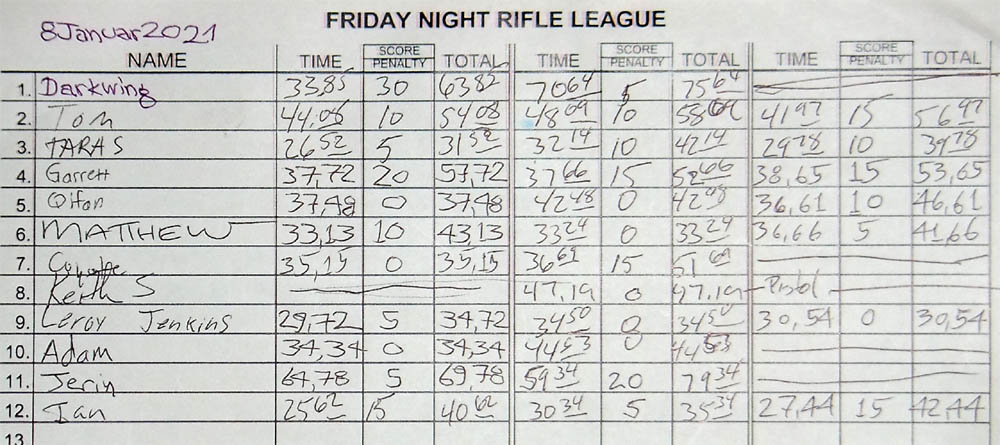 8 Januar 2021
FRIDAY NIGHT RIFLE LEAGUE
NAME TIME SCORE PENALTY TOTAL TIME SCORE PENALTY TOTAL TIME SCORE PENALTY TOTAL
1. Darkwing 33,85 30 63 85 70 64 5 75 64
2. Tom 44,08 10 54 08 48 09 10 58 09 41 97 15 56 97
3. TARAS 26 52 5 31 52 32 14 10 42 14 29 78 10 39 78
4. Garrett 37,72 20 57,72 37 66 15 52 66 38,65 15 53,65
5. 37,48 0 37,48 42 48 0 42 48 36,61 10 46,61
6. MATTHEW 33,13 10 43,13 33 24 0 33 24 36,66 5 41,66
7. 35,15 0 35,15 36 69 15 51 69
8. Keith S 47,19 0 47,19 Pistol
9. Leroy Jenkins 29,72 5 34,72 34 50 0 34 50 30,54 0 30,54
10. Adam 34,34 0 34,34 44 53 0 44 53
11. Jerin 64,78 5 69,78 59 34 20 79 34
12. Ian 25 62 15 40 62 30 34 5 35 34 27,44 15 42,44
13